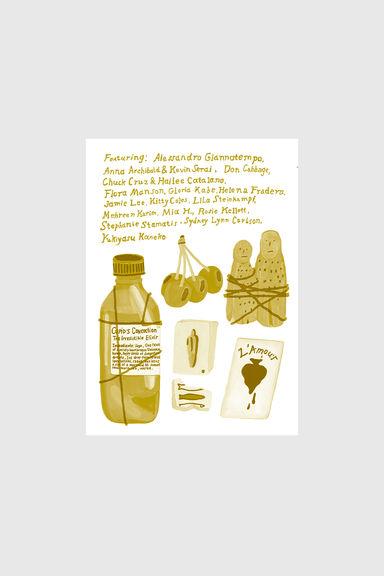 Featuring: Alessandro Giannatempo,
Anna Archibald & Kevin Serai, Don Cabbage,
Chuck Cruz & Hailee Catalano,
Flora Manson, Gloria Kabe, Helena Fradera,
Jamie Lee, Kitty Coles, Lila Steinkampf,
Mehreen Karim, Mia H., Rosie Kellett,
Stephanie Stamatis, Sydney Lynn Carlson,
Yukiyasu Kaneko
Cupid's Concoction
The Irresistible Elixir
Ingredients:
L'Amour